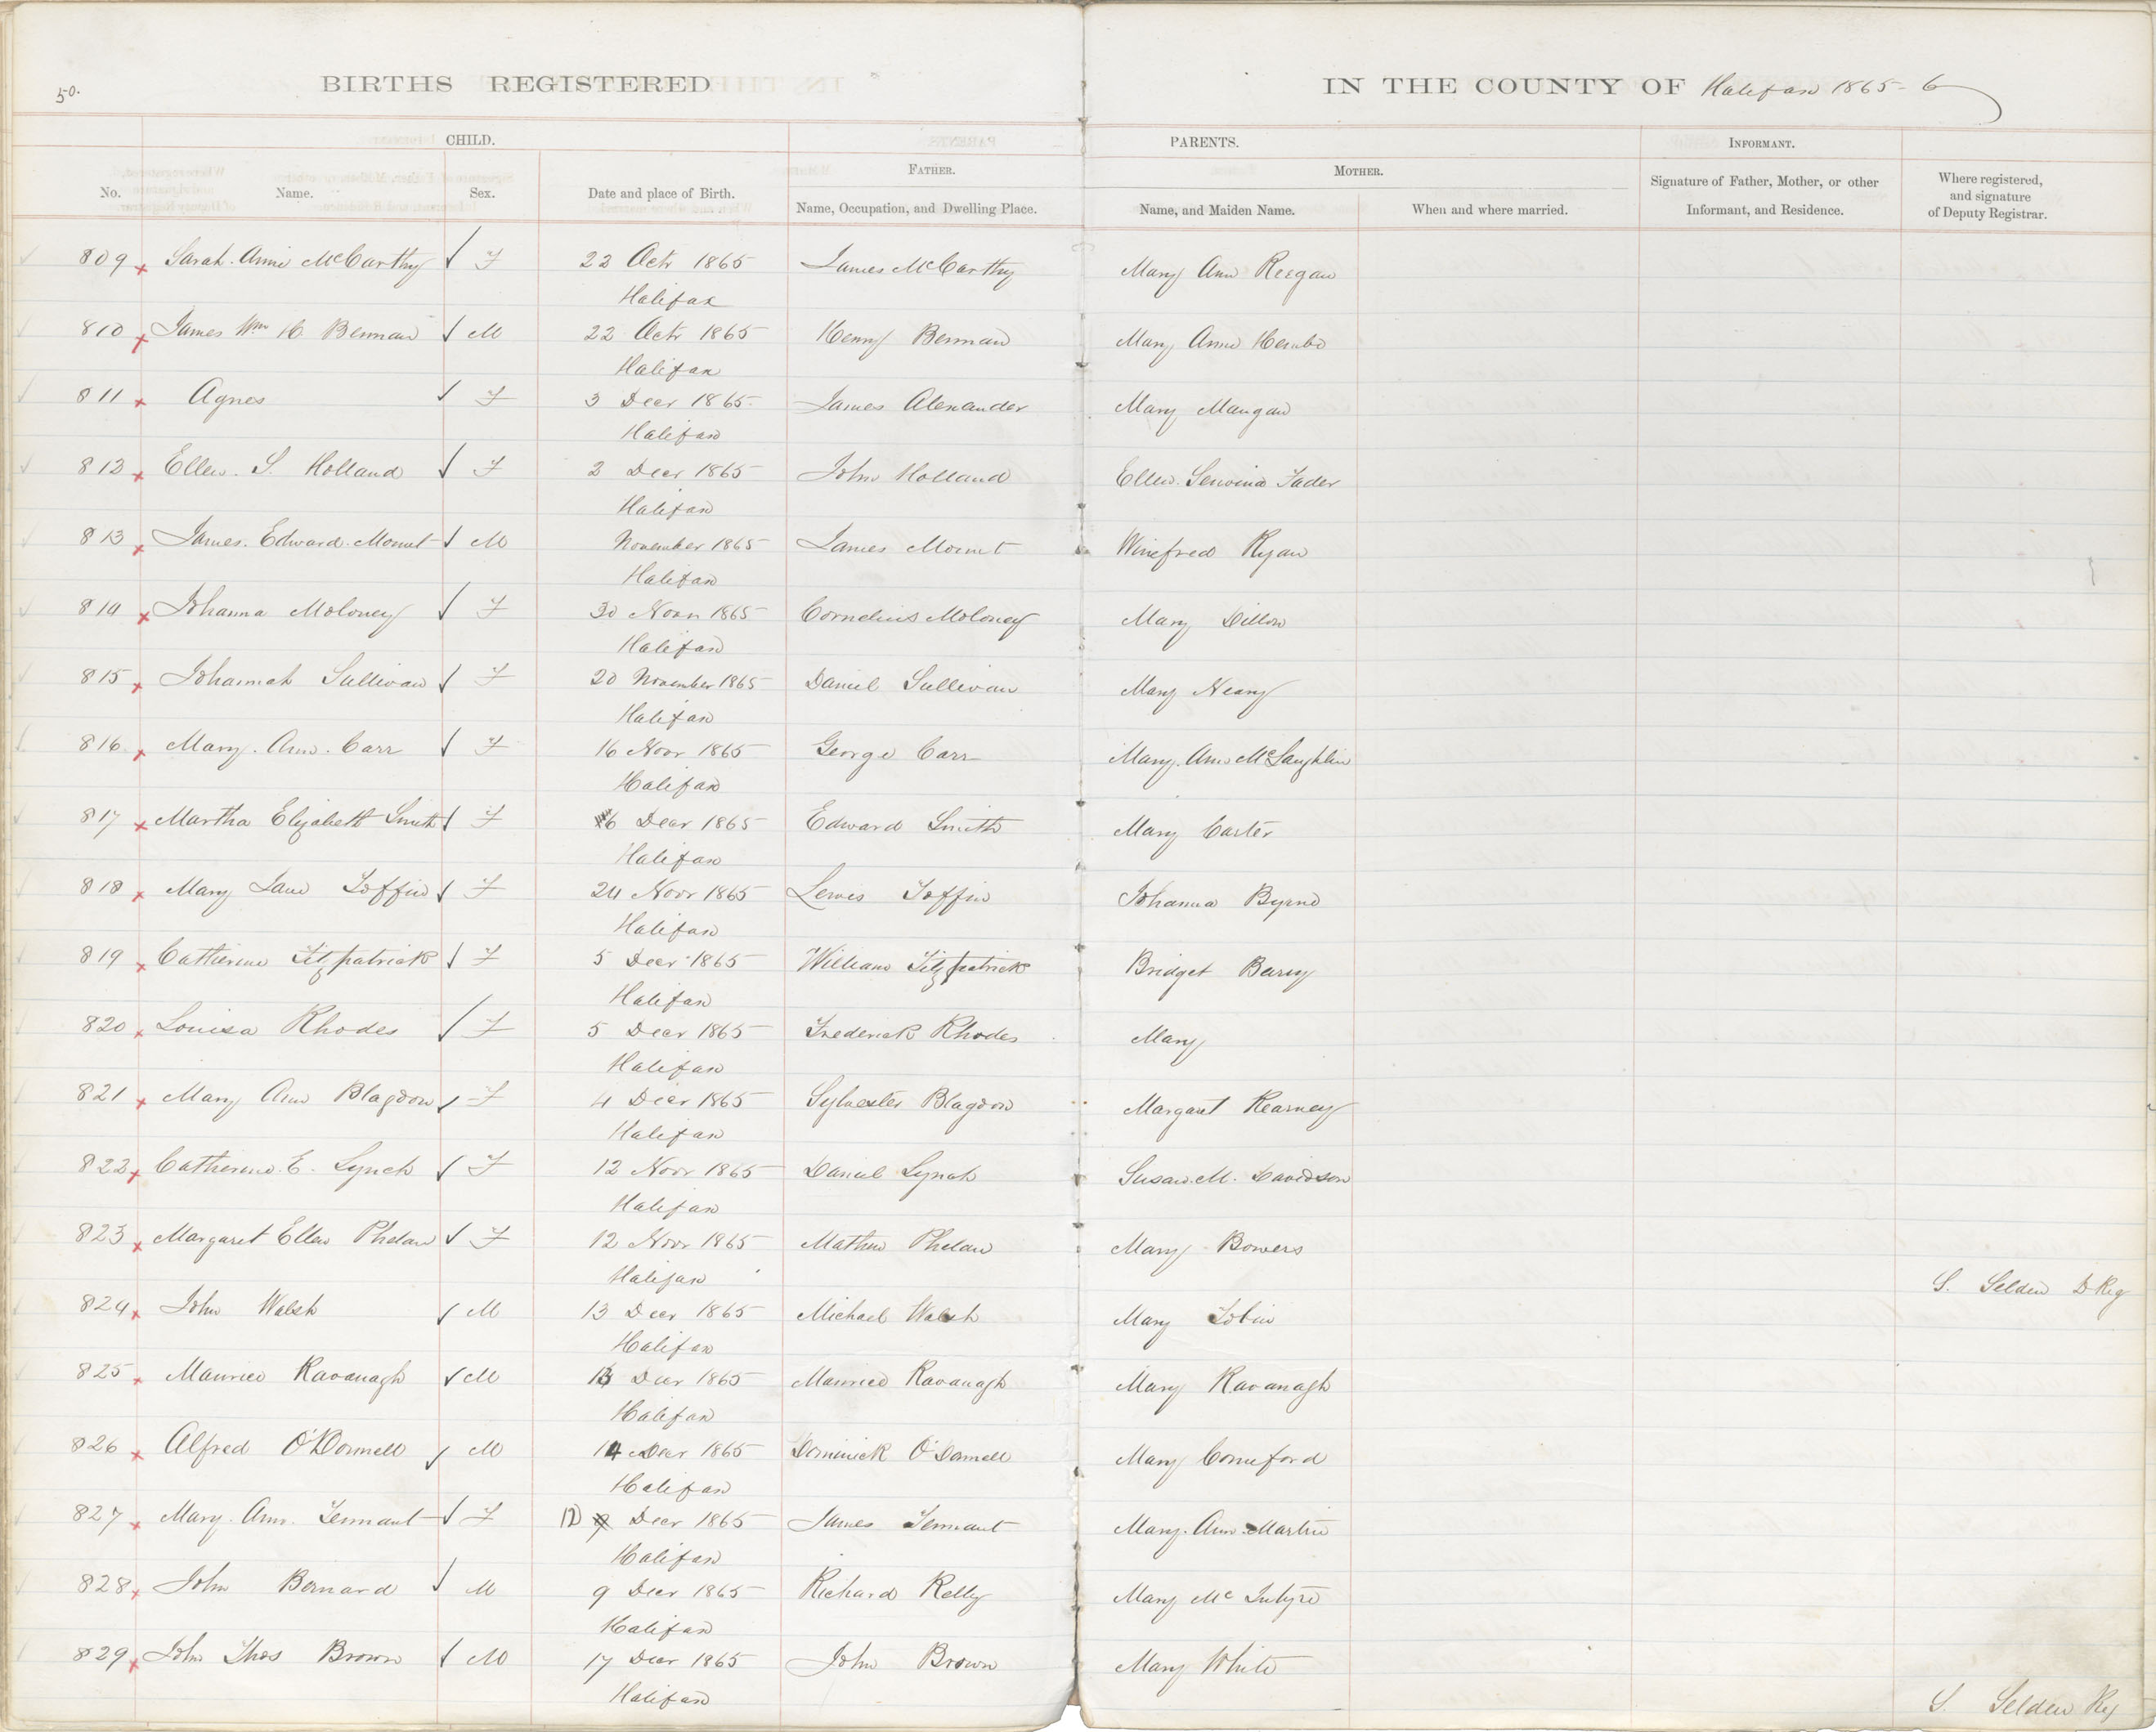 50.
BIRTHS REGISTERED IN THE COUNTY OF Halifax 1865-6
CHILD. PARENTS. INFORMANT.
FATHER. MOTHER.
No. Name. Sex. Date and place of Birth. Name, Occupation, and Dwelling Place. Name, and Maiden Name. When and where married. Signature of Father, Mother, or other Informant, and Residence. Where registered, and signature of Deputy Registrar.
809 Sarah Anne McCarthy F 22 Octr 1865 James McCarthy Mary Ann Reegan
Halifax
810 James Wm H. Bennan M 22 Octr 1865 Henry Bennan Mary Anne
Halifax
811 Agnes F 3 Decr 1865 James Alexander Mary Mangan
Halifax
812 Ellen S. Holland F 2 Decr 1865 John Holland Ellen Fader
Halifax
813 James Edward Mount M November 1865 James Mount Winefred Ryan
Halifax
814 Johanna Moloney F 30 Novr 1865 Cornelius Moloney Mary Dillon
Halifax
815 Johannah Sullivan F 20 November 1865 Daniel Sullivan Mary Neary
Halifax
816 Mary Ann Carr F 16 Novr 1865 George Carr Mary Ann McLaughlin
Halifax
817 Martha Elizabeth Smith F 6 Decr 1865 Edward Smith Mary Carter
Halifax
818 Mary Jane Toffin F 24 Novr 1865 Lewis Toffin Johanna Byrne
Halifax
819 Catherine Fitzpatrick F 5 Decr 1865 William Fitzpatrick Bridget Barry
Halifax
820 Louisa Rhodes F 5 Decr 1865 Frederick Rhodes Mary
Halifax
821 Mary Ann Blagdon F 4 Decr 1865 Sylvester Blagdon Margaret Kearney
Halifax
822 Catherine E. Lynch F 12 Novr 1865 Daniel Lynch Susan M. Davidson
Halifax
823 Margaret Ellen Phelan F 12 Novr 1865 Mathew Phelan Mary Bowers
Halifax
S. Selden D Reg
824 John Walsh M 13 Decr 1865 Michael Walsh Mary Tobin
Halifax
825 Maurice Kavanagh M 13 Decr 1865 Maurice Kavanagh Mary Kavanagh
Halifax
826 Alfred O'Donnell M 14 Decr 1865 Dominick O'Donnell Mary Comeford
Halifax
827 Mary Ann Tennant F 12 Decr 1865 James Tennant Mary Ann Martin
Halifax
828 John Bernard M 9 Decr 1865 Richard Kelly Mary McIntyre
Halifax
829 John Thos Brown M 17 Decr 1865 John Brown Mary White
Halifax
S. Selden Reg